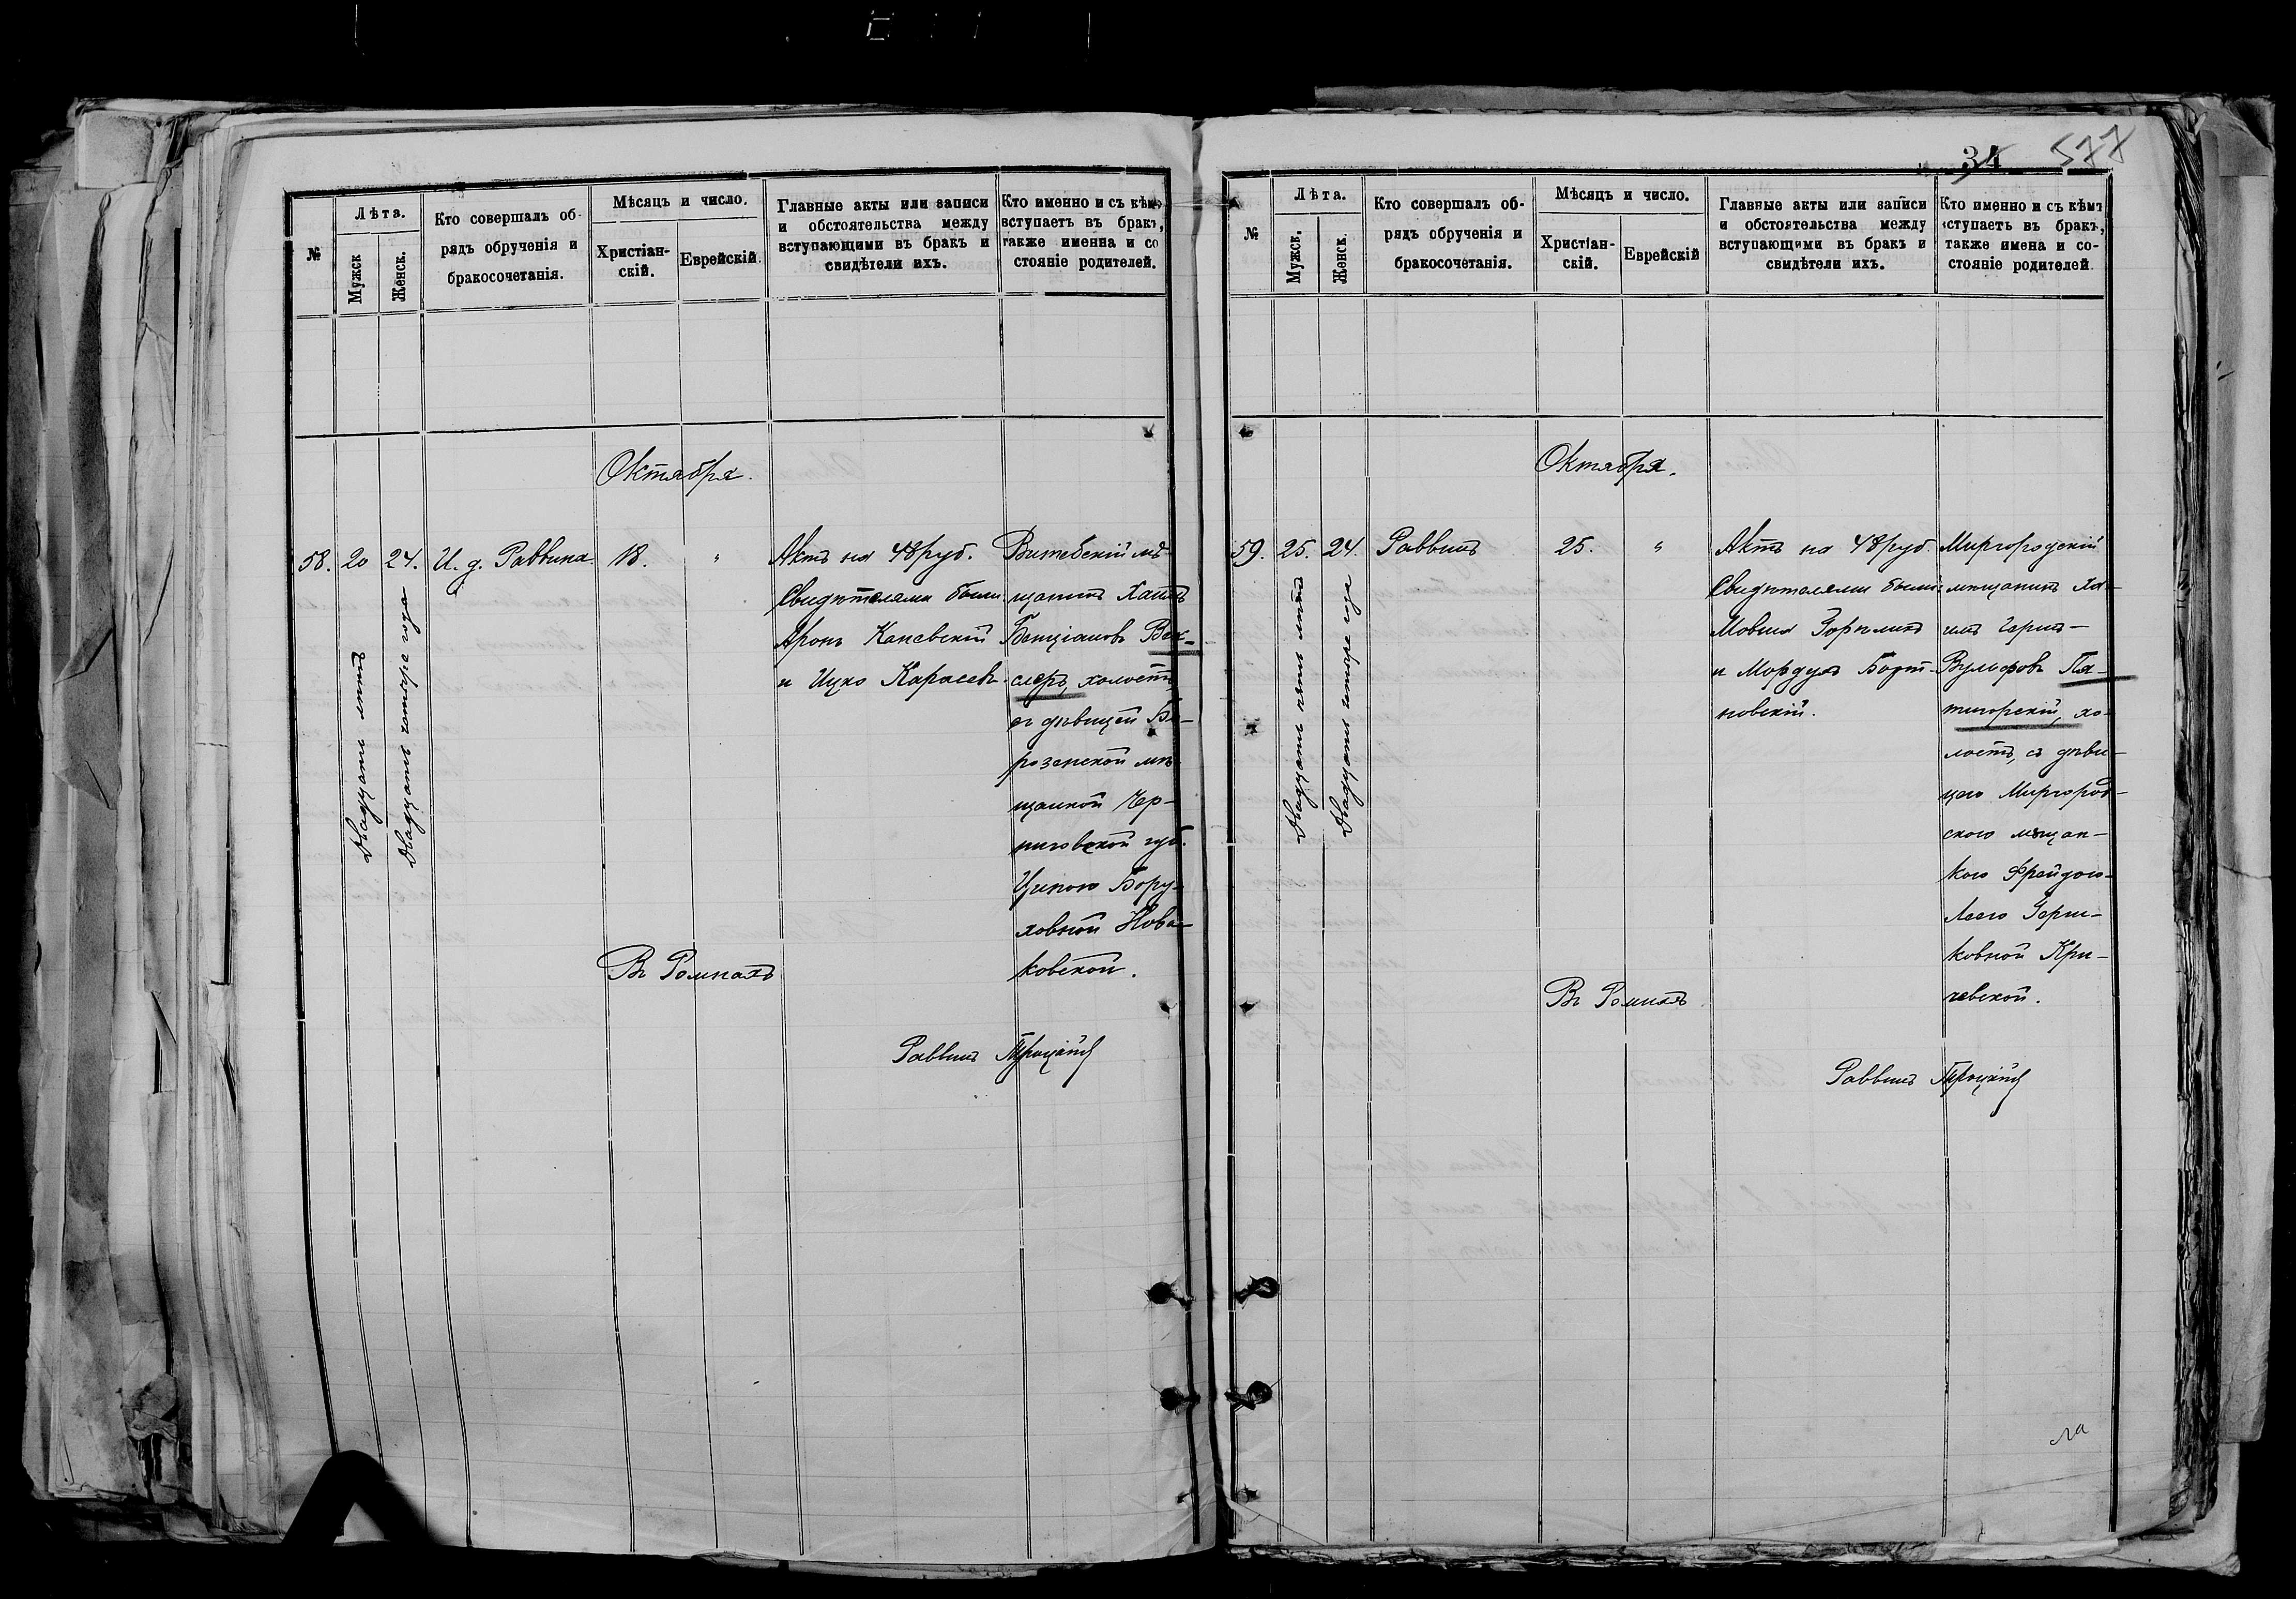 №
Лѣта.
Мужск
Женск.
Кто совершалъ об-
рядъ обрученія и
бракосочетанія.
Мѣсяцъ и число.
Христіан-
скій.
Еврейскій.
Главные акты или записи
и обстоятельства между
вступающими въ бракъ и
свидѣтели ихъ.
Кто именно и съ кѣмъ
вступаетъ въ бракъ,
также имена и со
стояніе родителей.
Октября.
58.
20
Двадцать лѣтъ
24.
Двадцать четыре года
И. д. Раввина.
18.
"
Актъ на 48 руб.
Свидѣтелями были
Аронъ Каневскій
и Ицко Карасевъ.
Витебскій мѣ-
щанинъ Хаимъ
Бенціановъ Век-
слеръ, холостъ,
съ дѣвицей Бе-
розенской мѣ-
щанкой Чер-
ниговской губ.
Ципою Бору-
ховной Нова-
ковской.
Въ Ромнахъ
Раввинъ Троцкій
34
577
№
Лѣта.
Мужск.
Женск.
Кто совершалъ об-
рядъ обрученія и
бракосочетанія.
Мѣсяцъ и число.
Христіан-
скій.
Еврейскій
Главные акты или записи
и обстоятельства между
вступающими въ бракъ и
свидѣтели ихъ.
Кто именно и съ кѣмъ
вступаетъ въ бракъ,
также имена и со-
стояніе родителей
Октября.
59.
25.
Двадцать пять лѣтъ
24.
Двадцать четыре года
Раввинъ
25.
"
Актъ на 48 руб.
Свидѣтелями были:
Мовша Зорплинъ
и Мордухъ Борт-
новскій.
Миргородскій
мѣщанинъ Ха-
имъ Герш-
Вульфовъ Пя-
тигорскій, хо-
лостъ, съ дѣви-
цею Миргород-
ского мѣщан-
кою Фрейдою-
Леею Герш-
ковной Кри-
чевской.
Въ Ромнахъ
Раввинъ Троцкій
ла